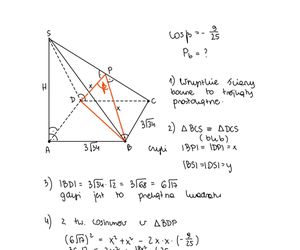 S
cosβ = - 9/25
P_b = ?
H
P
x
x
D
C
1) Wszystkie ściany
boczne to trójkąty
prostokątne.
3√34
A
3√34
B
2) △BCS ≡ △DCS
(bkb)
czyli |BP| = |DP| = x
|BS| = |DS| = y
3) |BD| = 3√34 · √2 = 3√68 = 6√17
gdyż jest to przekątna kwadratu
4) z tw. cosinusów w △BDP
(6√17)² = x² + x² - 2x · x · (- 9/25)